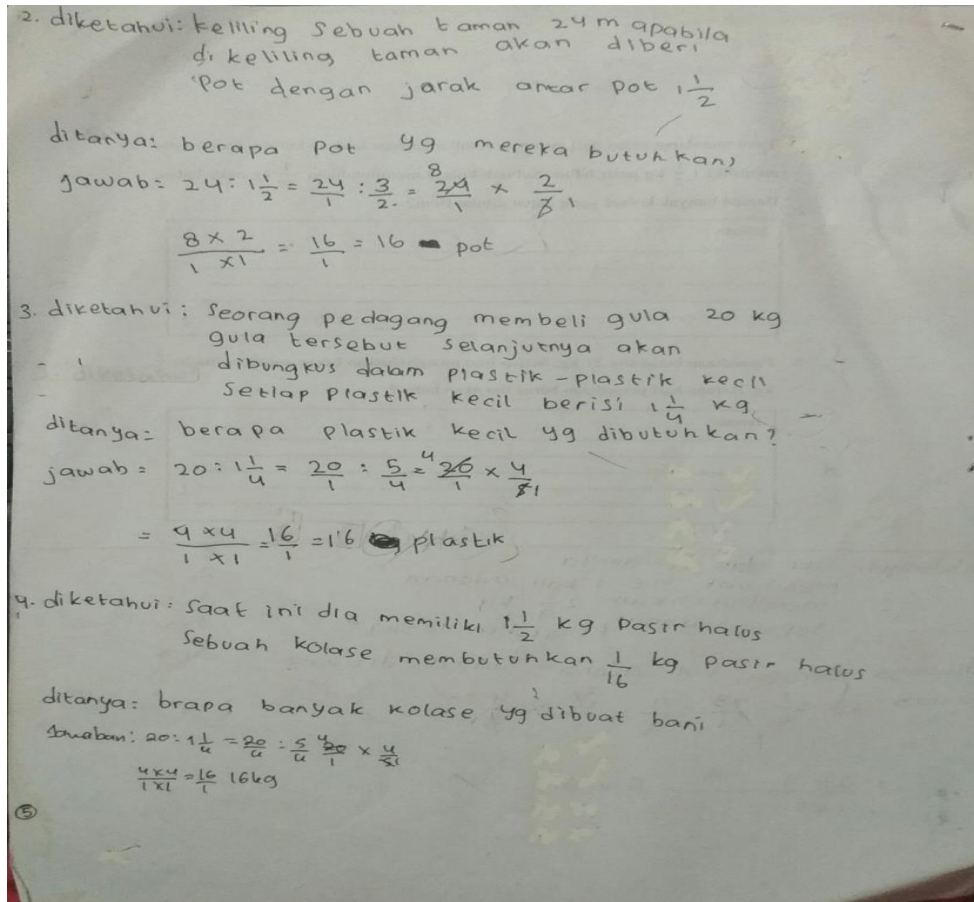 2. diketahui: kelliling sebuah taman 24 m apabila
di keliling taman akan diberi
Pot dengan jarak antar pot 1 1/2
ditanya: berapa pot yg mereka butuhkan?
Jawab = 24 : 1 1/2 = 24/1 : 3/2 = 8 24/1 × 2/3 1
8 × 2 / 1 × 1 = 16/1 = 16 pot
3. diketahui: seorang pedagang membeli gula 20 kg
gula tersebut selanjutnya akan
dibungkus dalam plastik-plastik kecil
setiap plastik kecil berisi 1 1/4 kg
ditanya = berapa plastik kecil yg dibutuhkan?
jawab = 20 : 1 1/4 = 20/1 : 5/4 = 4 20/1 × 4/5 1
= 4 × 4 / 1 × 1 = 16/1 = 16 plastik
4. diketahui: saat ini dia memiliki 1 1/2 kg pasir halus
Sebuah kolase membutuhkan 1/16 kg pasir halus
ditanya: brapa banyak kolase yg dibuat bani?
Jawaban: 20 : 1 1/4 = 20/4 : 5/4 4 20/1 × 4/5 1
4×4/1×1 = 16/1 16 kg
5